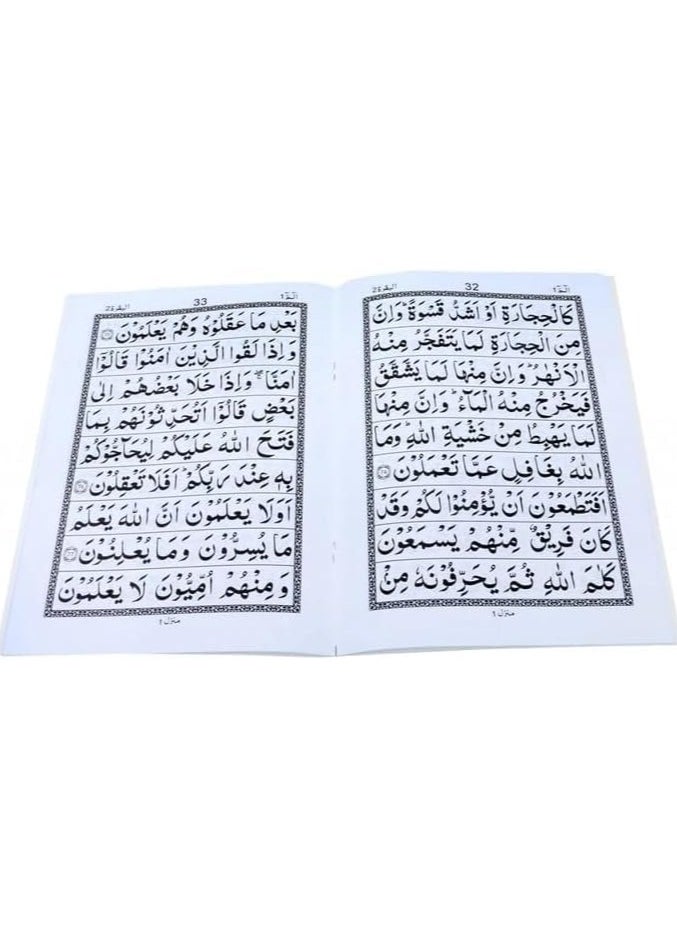 الٓمّٓ ١
32
البقرة 2
كَالْحِجَارَةِ اَوْ اَشَدُّ قَسْوَةً ؕ وَاِنَّ
مِنَ الْحِجَارَةِ لَمَا يَتَفَجَّرُ مِنْهُ
الْاَنْهٰرُ ؕ وَاِنَّ مِنْهَا لَمَا يَشَّقَّقُ
فَيَخْرُجُ مِنْهُ الْمَآءُ ؕ وَاِنَّ مِنْهَا
لَمَا يَهْبِطُ مِنْ خَشْيَةِ اللّٰهِ ؕ وَمَا
اللّٰهُ بِغَافِلٍ عَمَّا تَعْمَلُوْنَ
اَفَتَطْمَعُوْنَ اَنْ يُّؤْمِنُوْا لَكُمْ وَقَدْ
كَانَ فَرِيْقٌ مِّنْهُمْ يَسْمَعُوْنَ
كَلٰمَ اللّٰهِ ثُمَّ يُحَرِّفُوْنَهٗ مِنْۢ
منزل ١
الٓمّٓ ١
33
البقرة 2
بَعْدِ مَا عَقَلُوْهُ وَهُمْ يَعْلَمُوْنَ
وَاِذَا لَقُوا الَّذِيْنَ اٰمَنُوْا قَالُوْۤا
اٰمَنَّا ۖۚ وَاِذَا خَلَا بَعْضُهُمْ اِلٰى
بَعْضٍ قَالُوْۤا اَتُحَدِّثُوْنَهُمْ بِمَا
فَتَحَ اللّٰهُ عَلَيْكُمْ لِيُحَآجُّوْكُمْ
بِهٖ عِنْدَ رَبِّكُمْ ؕ اَفَلَا تَعْقِلُوْنَ
اَوَلَا يَعْلَمُوْنَ اَنَّ اللّٰهَ يَعْلَمُ
مَا يُسِرُّوْنَ وَمَا يُعْلِنُوْنَ
وَمِنْهُمْ اُمِّيُّوْنَ لَا يَعْلَمُوْنَ
منزل ١